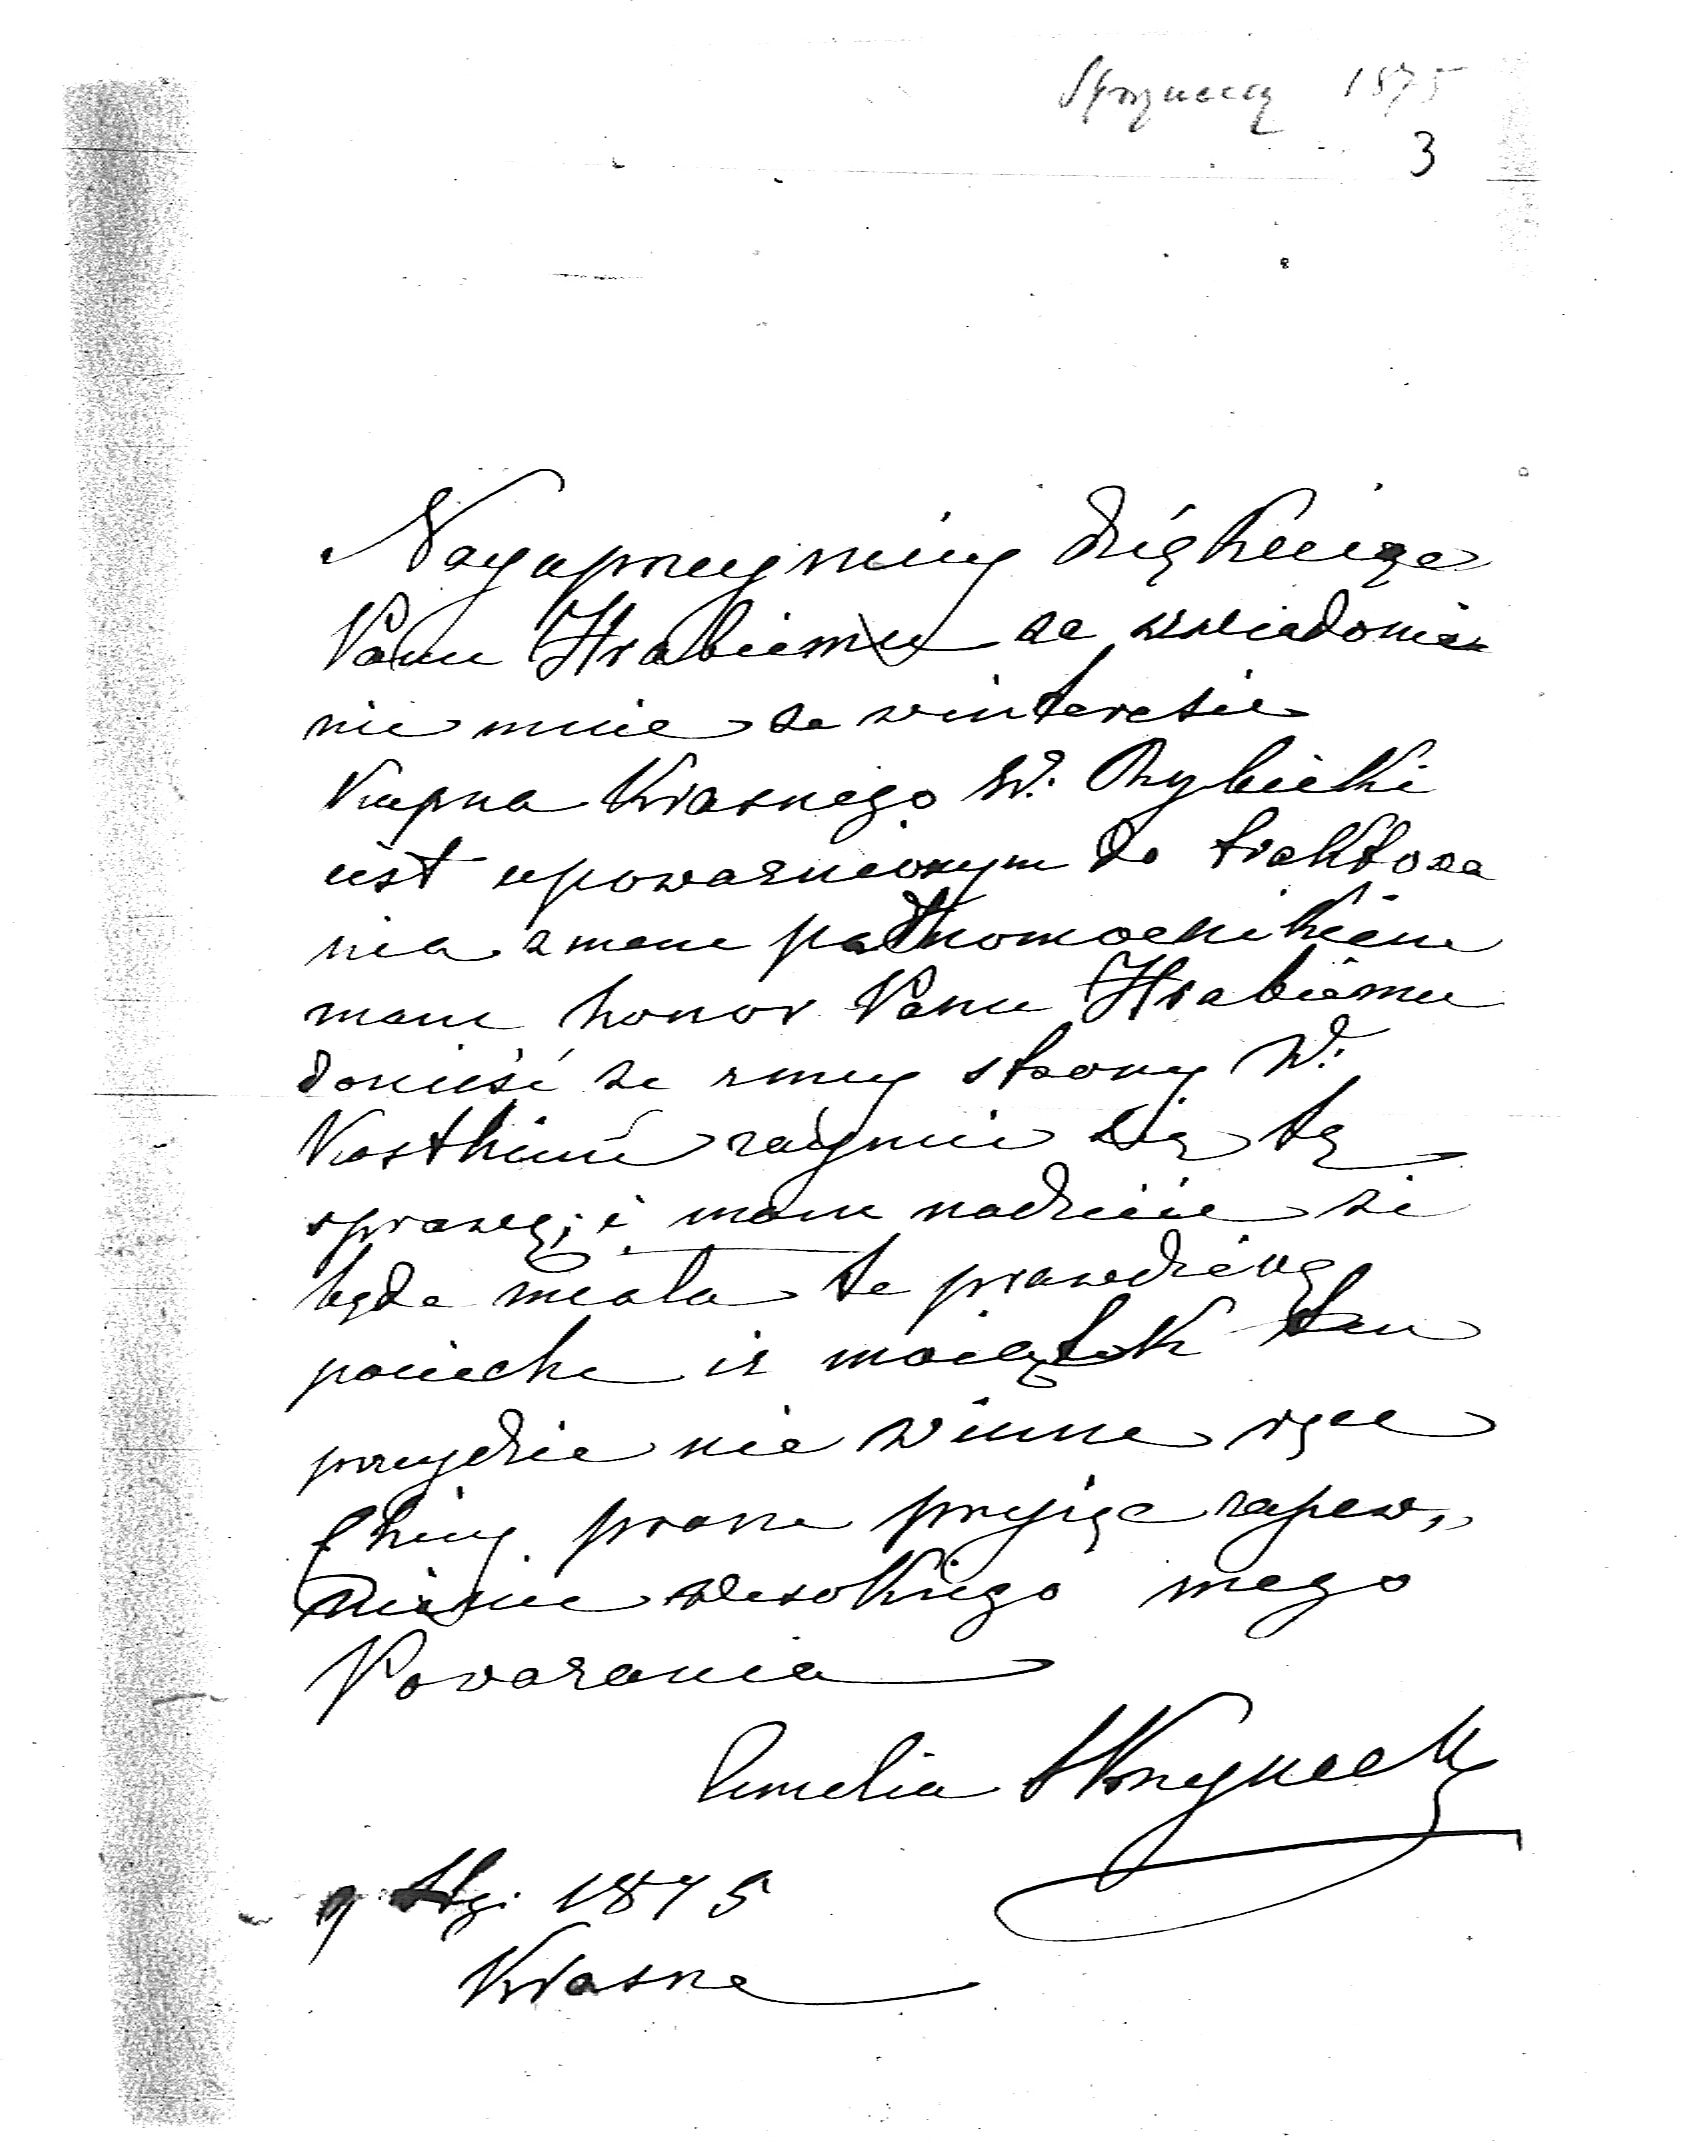 1875
3
Nayuprzeymiey dziękuię
Panu Hrabiemu za uwiadomie„
nie mnie że w interesie
Kupna Krasnego W. Rybicki
iest upoważnionym do traktowa
nia z mem pełnomocnikiem
mam honor Panu Hrabiemu
donieść że z mey strony W.
zaymie się tą
sprawą; i mam nadzieie że
będe miała te prawdziwą
pocieche iż maiątek ten
przeydzie nie w inne ręce
Chciey prosze przyjąc zapew„
nienie wysokiego mego
Poważania
Emelia Skrzynecka
9 Stg. 1875
Krasne